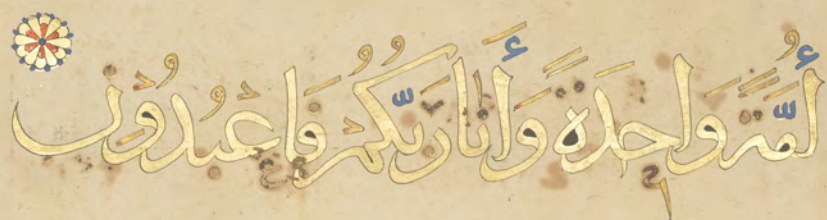 أُمَّةً وَاحِدَةً وَأَنَا رَبُّكُمْ فَاعْبُدُونِ